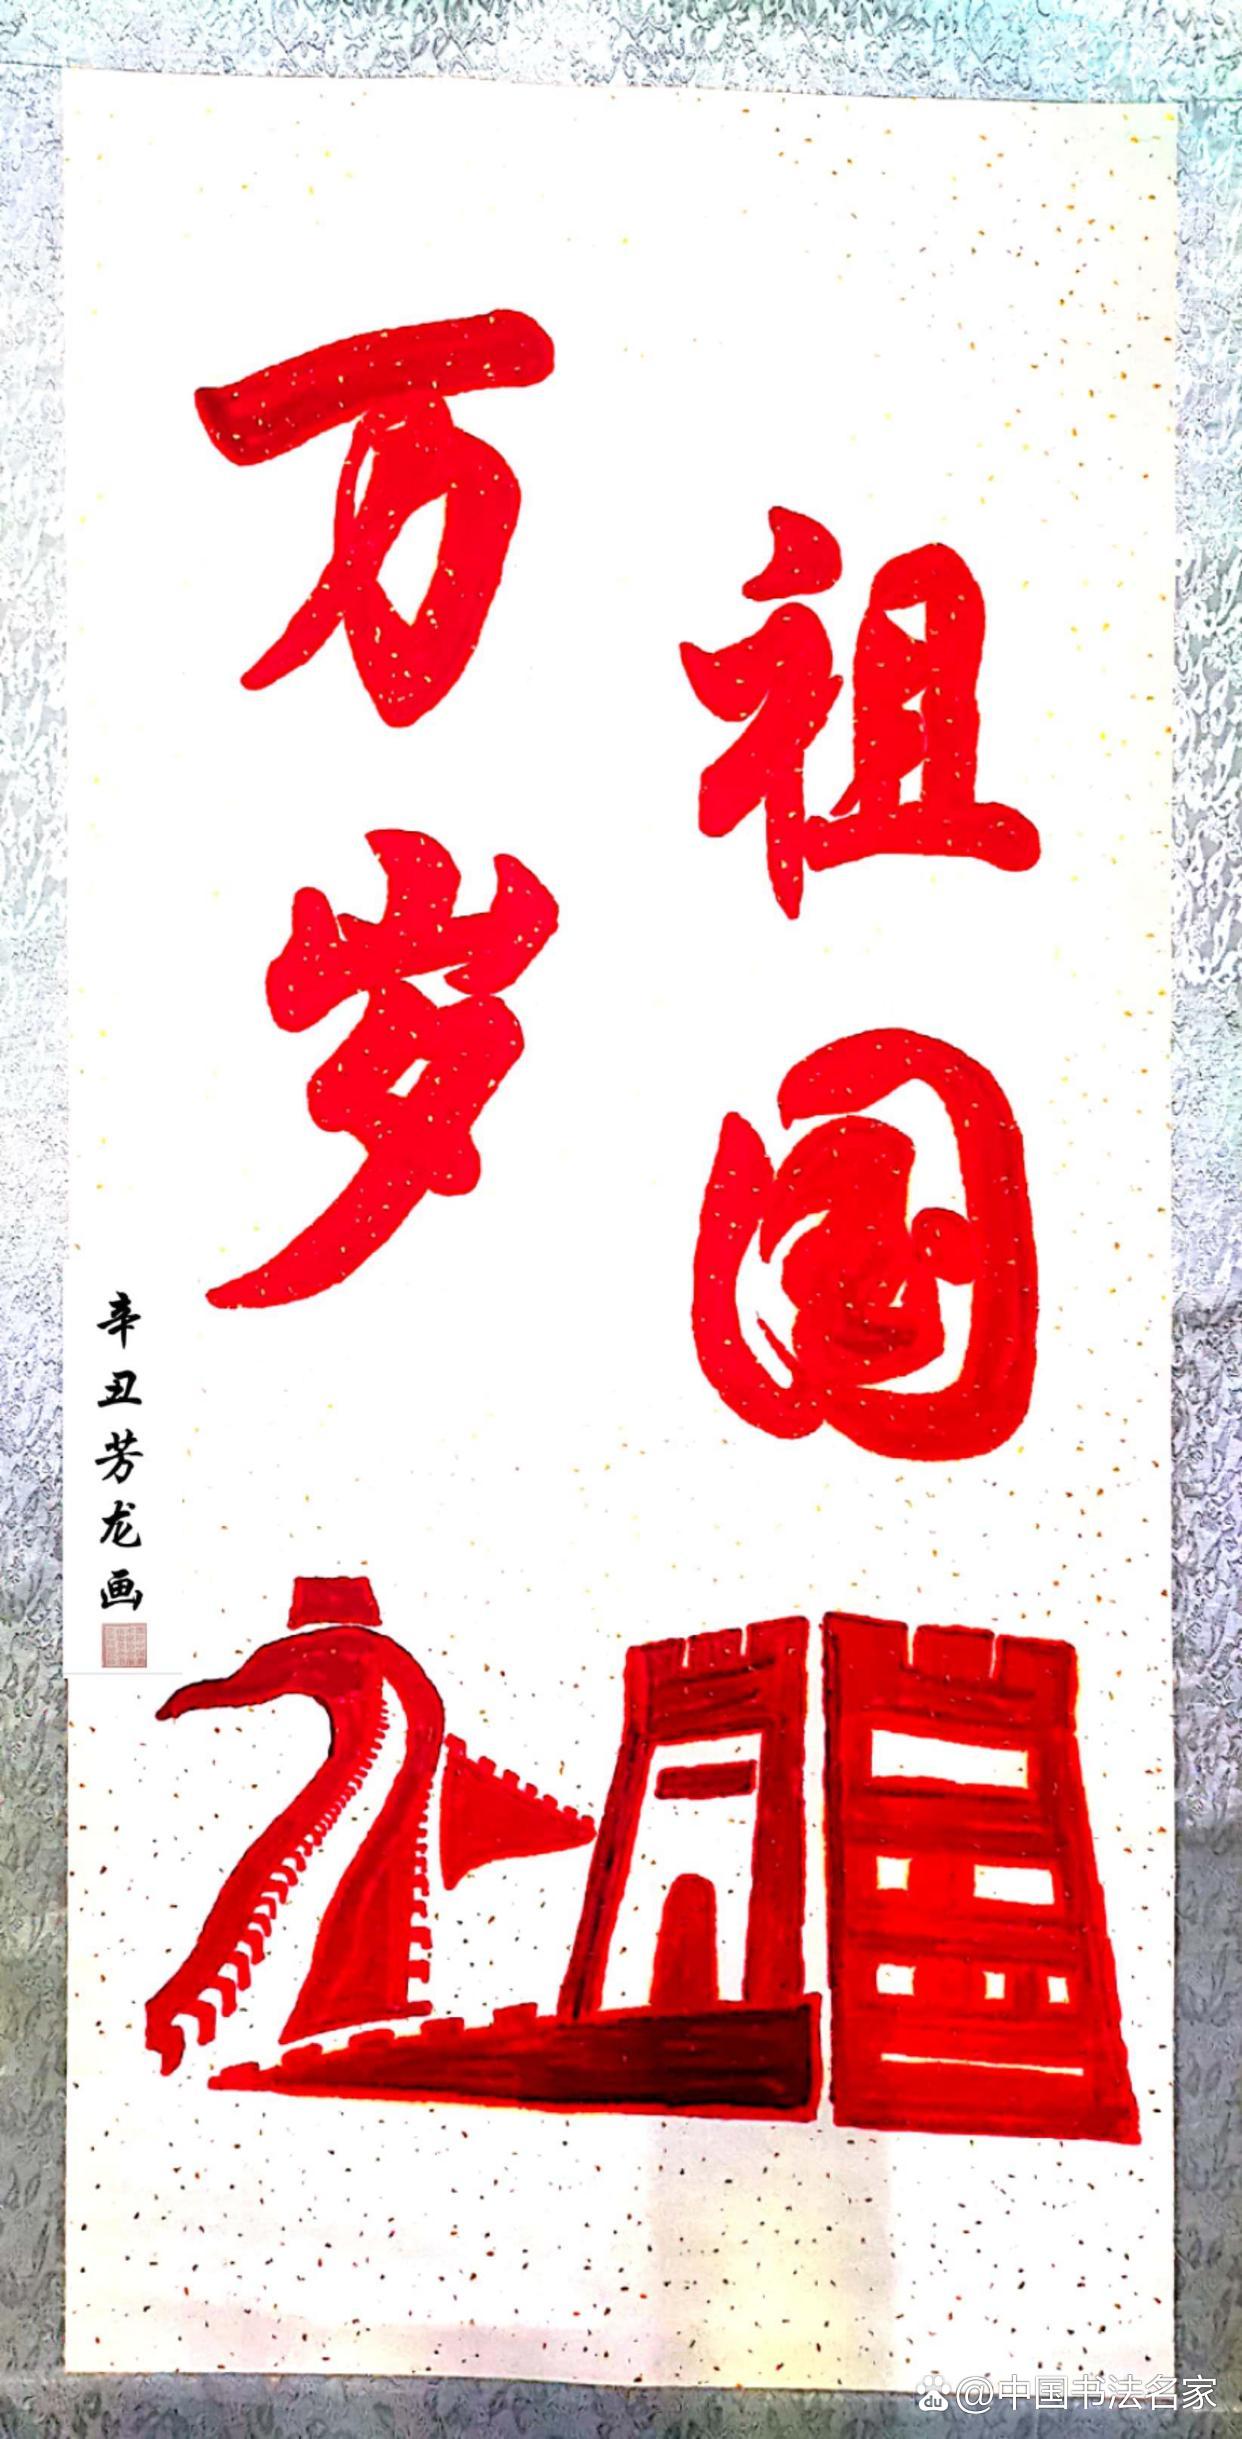 祖国
万岁
辛丑芳龙画
@中国书法名家